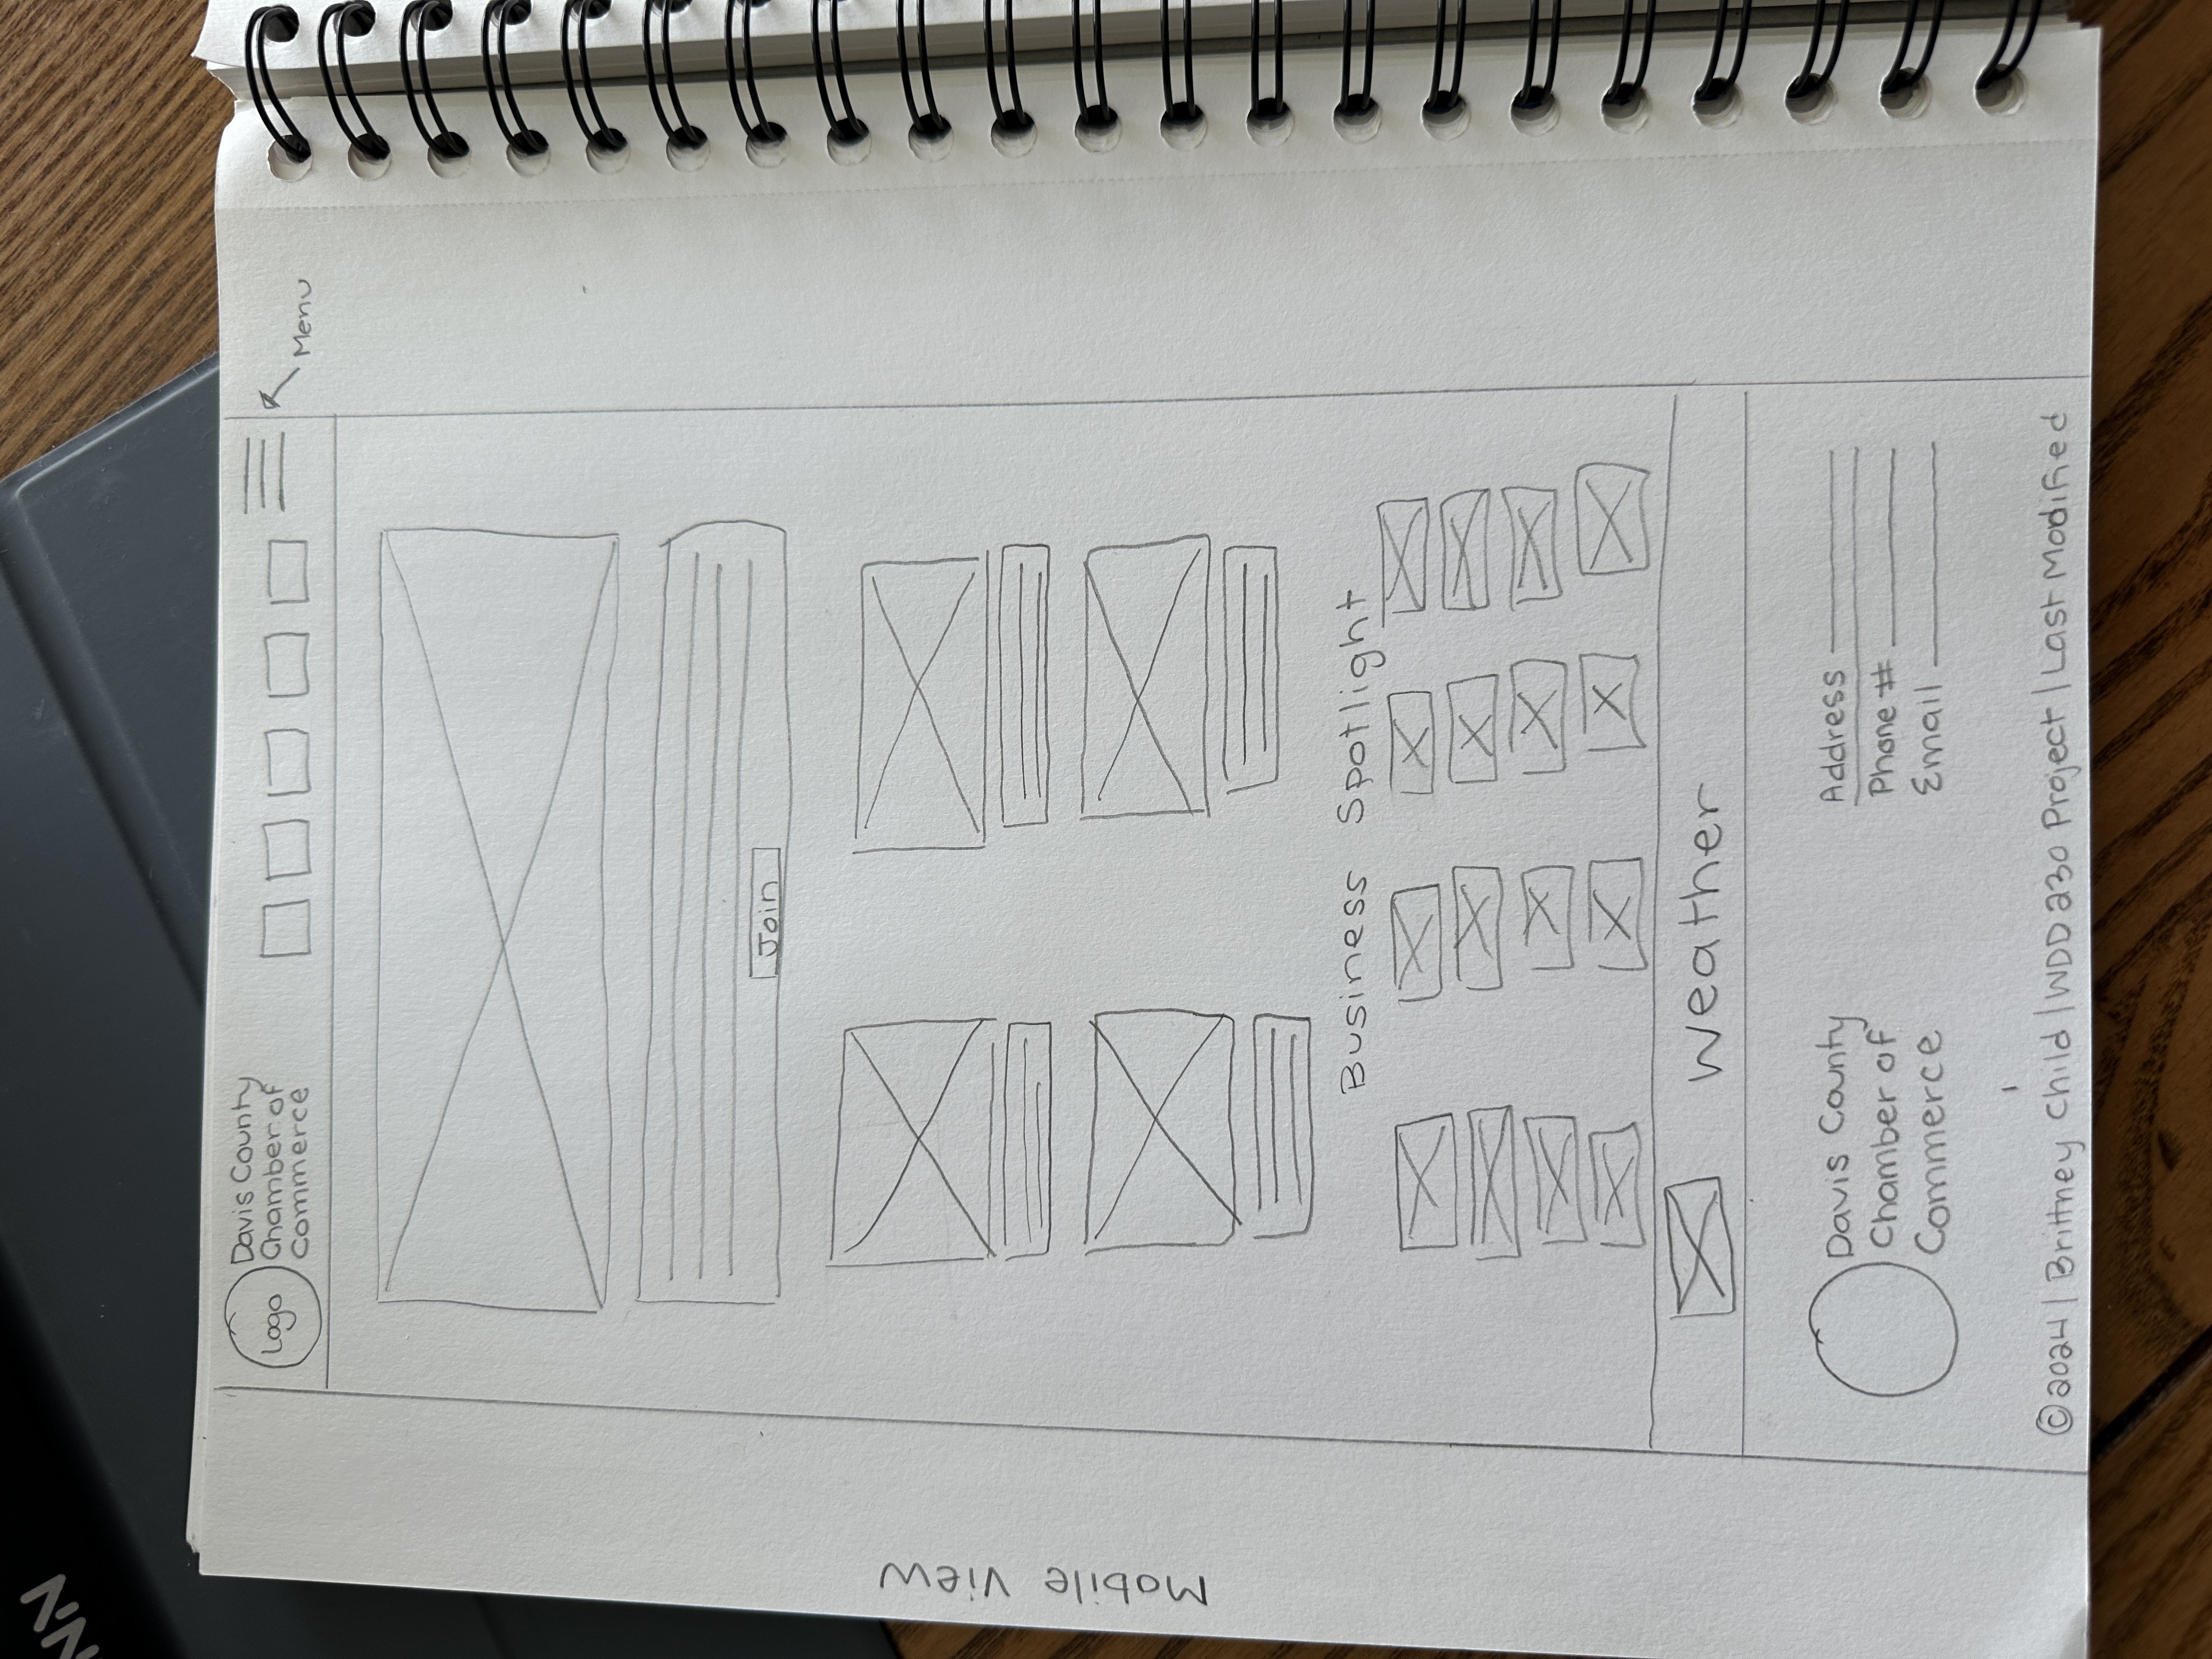 Logo
Davis County
Chamber of
Commerce
Menu
Join
Mobile View
Business Spotlight
Weather
Davis County
Chamber of
Commerce
Address
Phone #
Email
©2024 | Brittney Child | WDD 230 Project | Last Modified